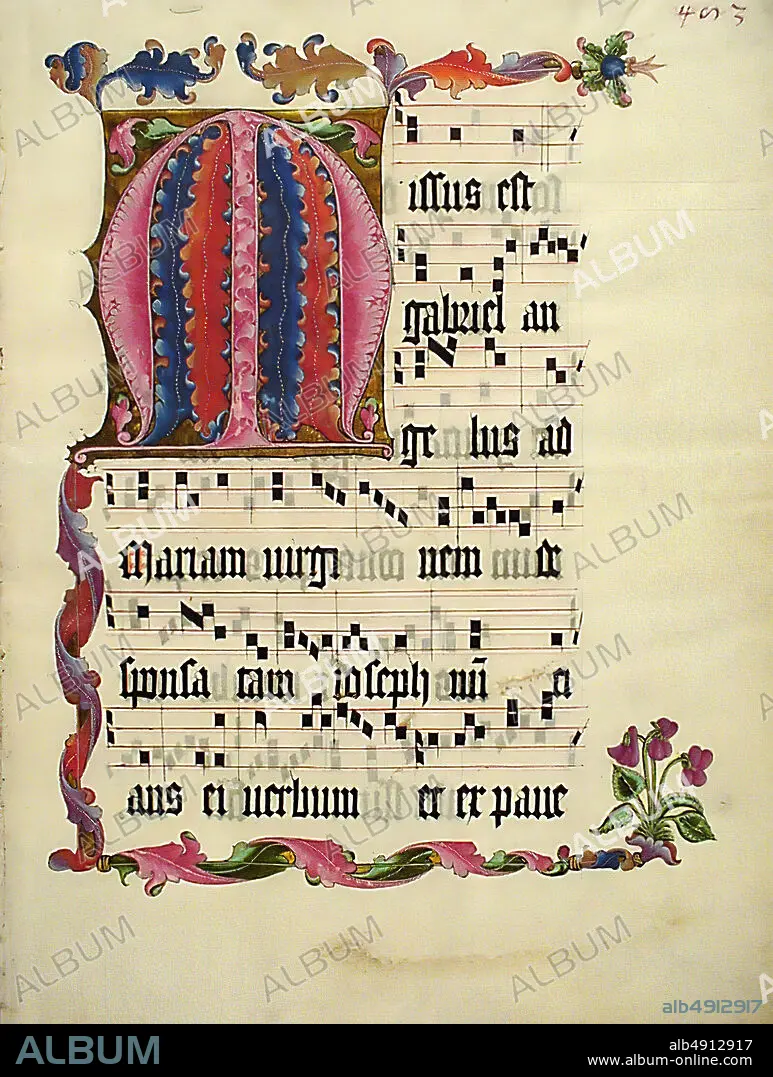 4053
Missus est
gabriel an
ge lus ad
Mariam uirgi nem de
sponsa tam ioseph nū ci
ans ei uerbum et ex paue
ALBUM
alb4912917
ALBUM
alb4912917
www.album-online.com